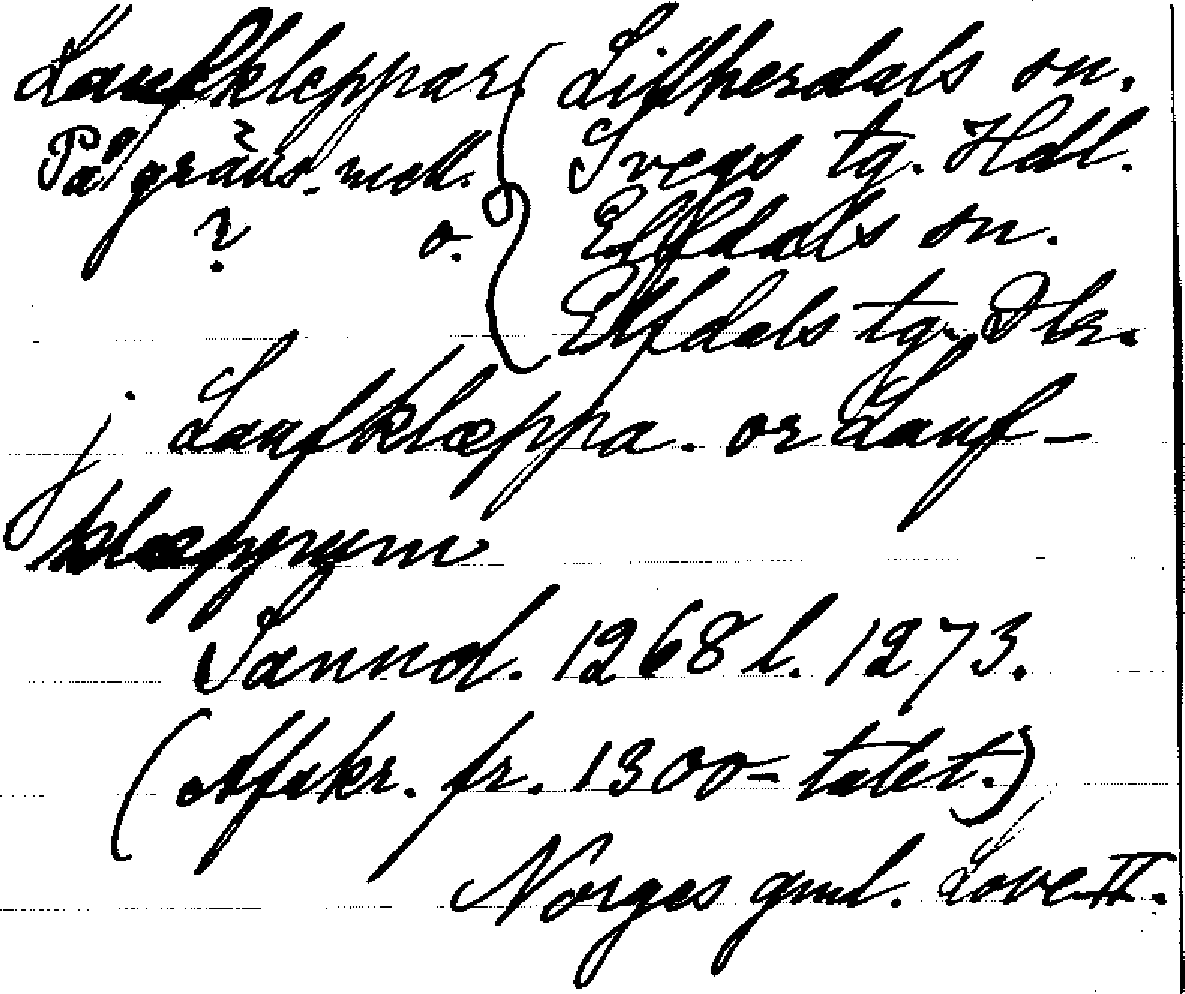 Laufkleppar { Lillherdals sn.
På gräns. mell. Svegs tg. Hdl.
? o. { Elfdals sn.
Elfdals tg. Dlr.
j Laufklæppa. or Lauf-
klæppum
Sannol. 1268 l. 1273.
(Afskr. fr. 1300-talet.)
Norges gml. Love II.